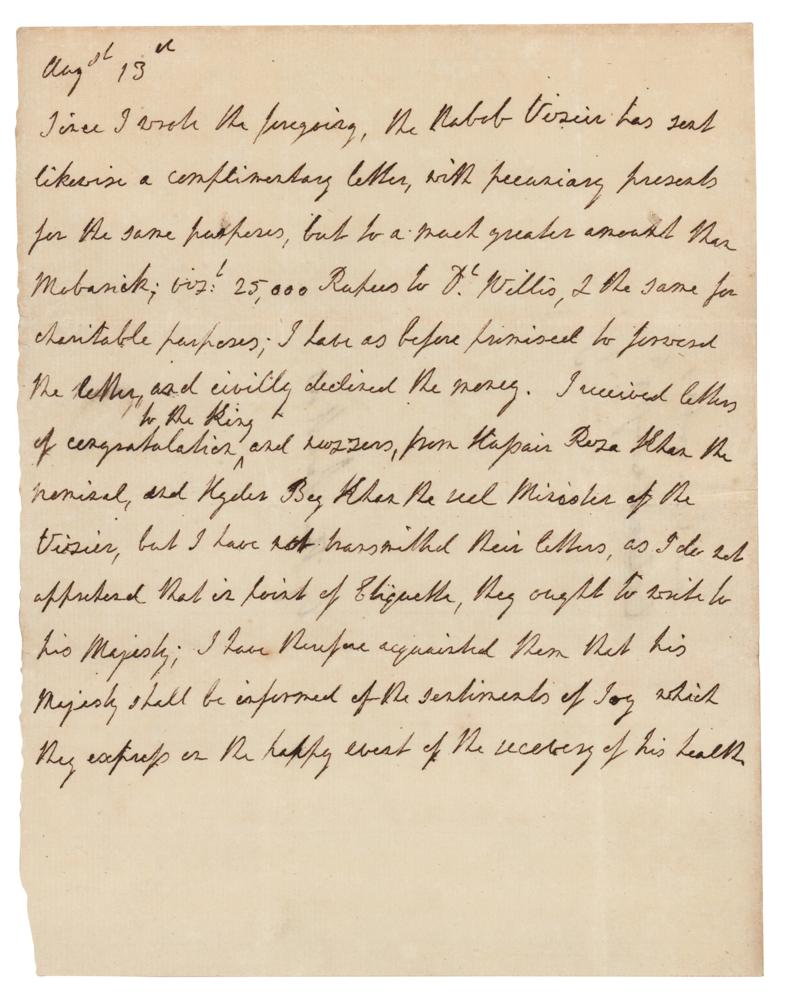 Augst 13th
Since I wrote the foregoing, the Nabob Vizier has sent
likewise a complimentary letter, with pecuniary presents
for the same purposes, but to a much greater amount than
Mobarick; vizt. 25,000 Rupees to Dr. Willis, & the same for
charitable purposes; I have as before promised to forward
the letter, and civilly declined the money. I received letters
to the King
of congratulation, and nuzzers, from Hussain Reza Khan the
nominal, and Hyder Beg Khan the real Minister of the
Vizier, but I have not transmitted their letters, as I do not
apprehend that in point of Etiquette, they ought to write to
his Majesty; I have therefore acquainted them that his
Majesty shall be informed of the sentiments of Joy which
they express on the happy event of the recovery of his health